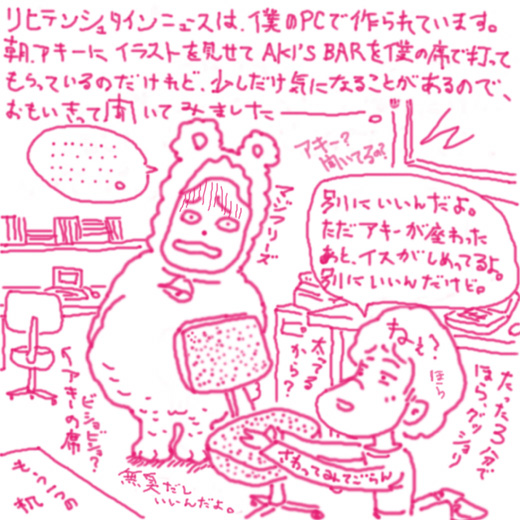 リヒテンシュタインニュースは、僕のPCで作られています。
朝、アキーにイラストを見せてAKI'S BARを僕の席で打って
もらっているのだけれど、少しだけ気になることがあるので、
おもいきって聞いてみました
アキー?
聞いてるの?
別にいいんだよ。
ただアキーが座わった
あと、イスがしめってるよ。
別にいいんだけど。
マジフリーズ
ねぇ?
ほら
太ってる
から?
たった3分で
ほら、グッショリ
←アキーの席
ビショビショ?
さわってみてごらん
無臭だし
いいんだよ。
机